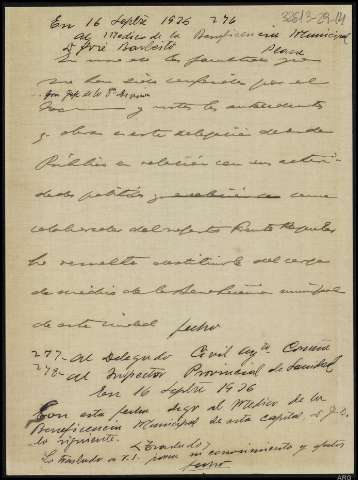 En 16 Septbre 1936 276 32613-29-14
Al Medico de la Beneficencia Municipal
D José Barbeito Plaza
En uso de las facultades que
me han sido conferidas por el
Gral Jefe de la 8ª Division
y vistos los antecedentes
q. obran en esta delegación de orden
Público en relación con sus activi-
dades políticas
como
colaborador del nefasto Frente Popular
he resuelto destituirle del cargo
de medico de la Beneficencia municipal
de esta ciudad fecho
277 - Al Delegado Civil Coruña
278 - Al Inspector Provincial de Sanidad
En 16 Septbre 1936
Con esta fecha digo al Medico de la
Beneficencia Municipal de esta capital D J. B.
lo siguiente:
(Traslado)
Lo traslado a V. I. para su conocimiento y efectos
fecho
ARG